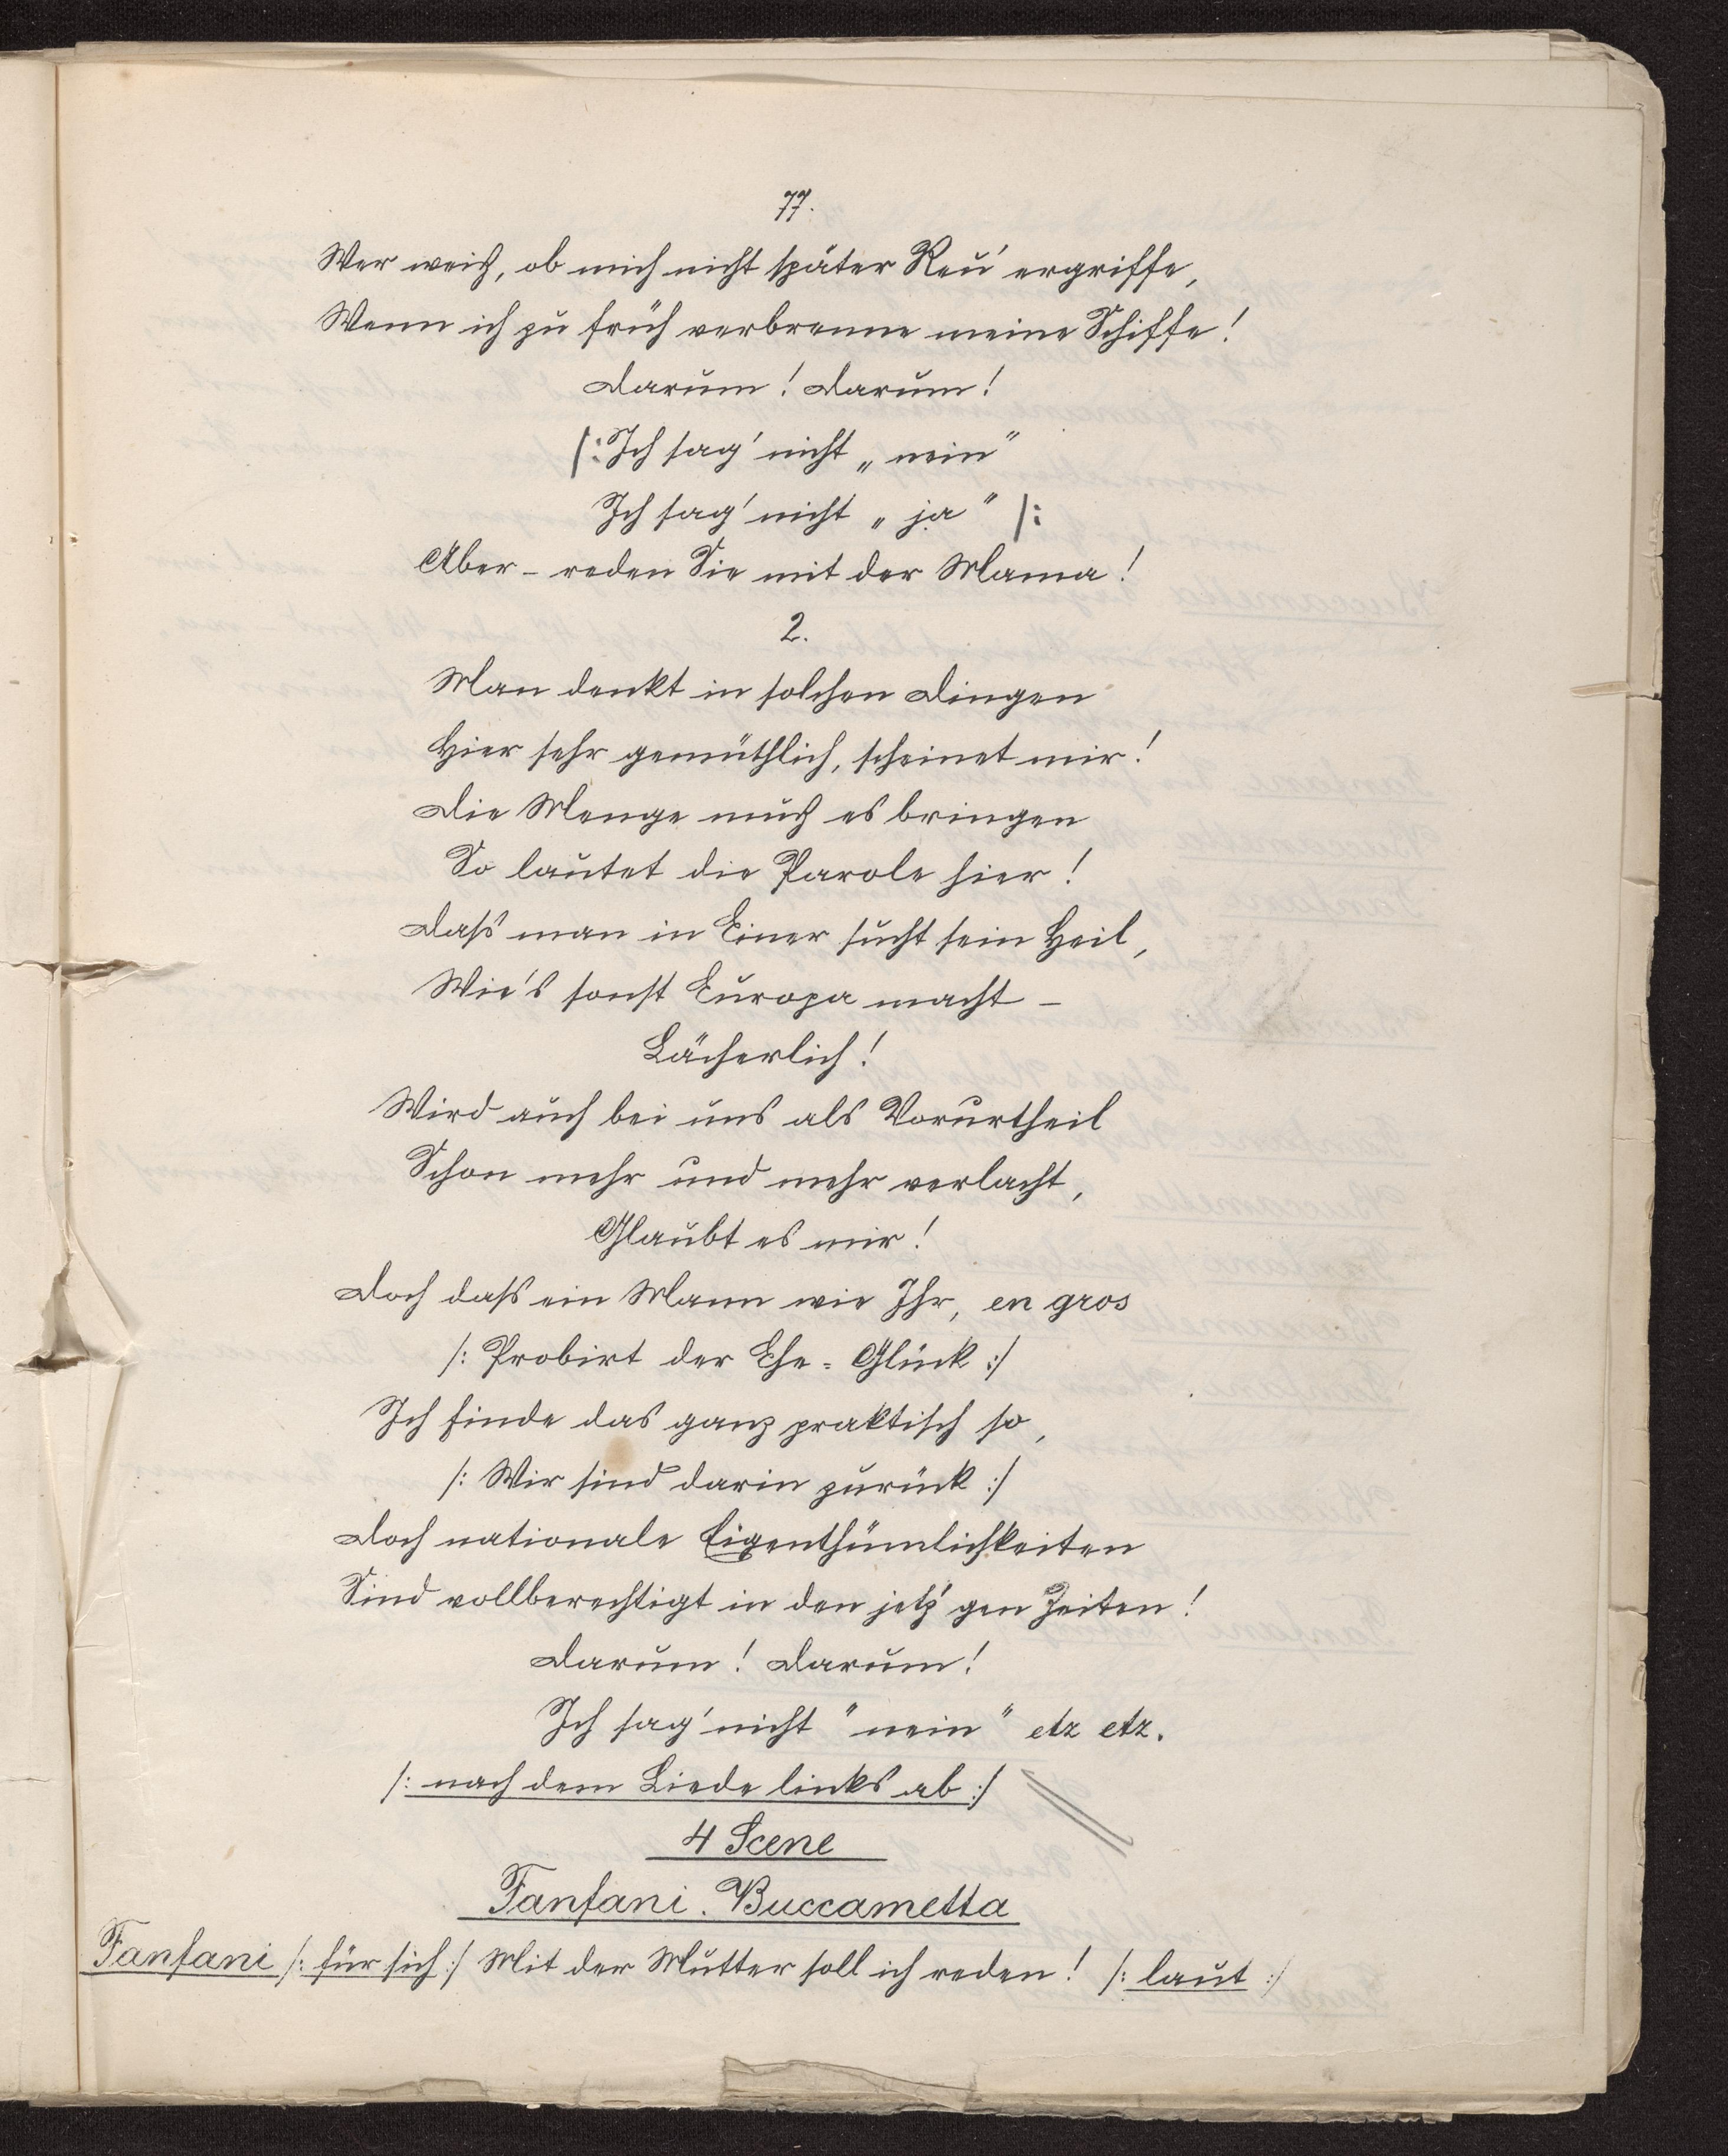 77.
Wer weiß, ob mich nicht später Reu' ergriffe,
Wenn ich zu früh verbrenne meine Schiffe!
Darum! Darum!
/: Ich sag' nicht „nein"
Ich sag' nicht „ja" /:
Aber – reden Sie mit der Mama!
2.
Man denkt in solchen Dingen
Hier sehr gemüthlich, scheinet mir!
Die Menge muß es bringen
So lautet die Parole hier!
Dass man in Einer sucht sein Heil,
Wie's sonst Europa macht –
Lächerlich!
Wird auch bei uns als Vorurtheil
Schon mehr und mehr verlacht,
Glaubt es mir!
Doch dass ein Mann wie Ihr, en gros
/: Probirt der Ehe-Glück :/
Ich finde das ganz praktisch so,
/: Wir sind darin zurück :/
Doch nationale Eigenthümlichkeiten
Sind vollberechtigt in den jetz'gen Zeiten!
Darum! Darum!
Ich sag' nicht "nein" etz etz.
/: nach dem Liede links ab :/
4 Scene
Fanfani. Buccametta
Fanfani /: für sich :/ Mit der Mutter soll ich reden! /: laut :/